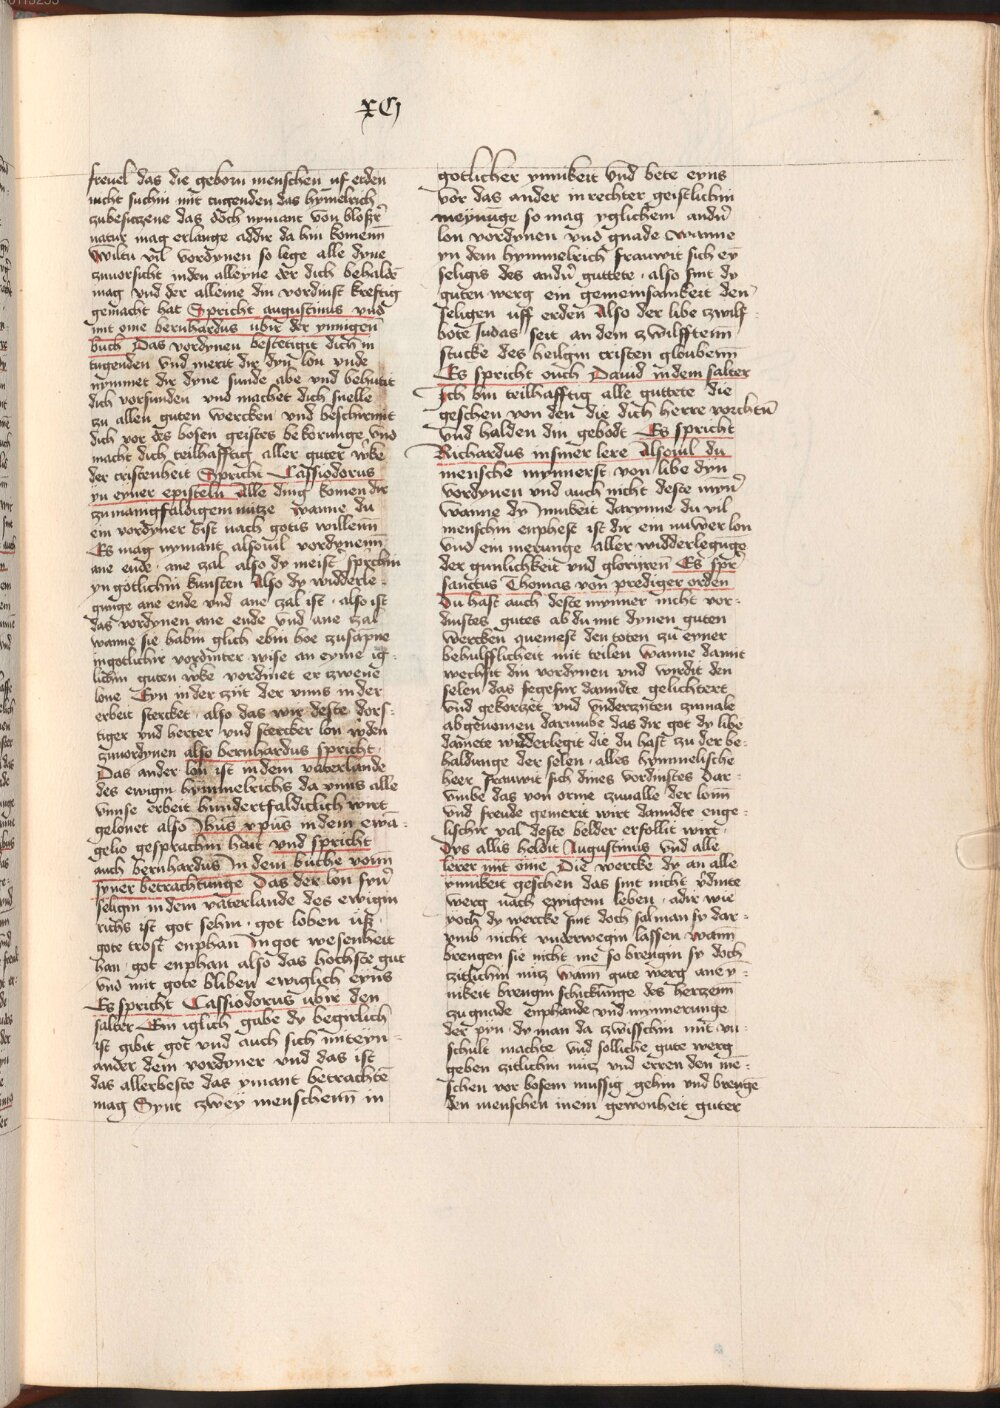 xCj
frevel das die geborn menschen uf erden
nicht suchin mit tugenden das hymelrich
zubesiczene das doch nymant von bloßer
natur mag erlange addir da hin komenn
Wiltu vil vordynen so lege alle dyne
zuvorsicht inden alleyne der dich behaldē
mag vnd der alleine din vordinst kreftig
gemacht hat Spricht augustinus vnd
mit ome bernhardus ubir der ynnigen
buch Das vordynen bestetigit dich in
tugenden vnd merit dir dyn lon vnde
nymmet dir dyne sunde abe vnd behutit
dich vorsunden vnd machet dich snelle
zu allen guten wercken vnd beschirmit
dich vor des bosen geistes bekorunge vnd
macht dich teilhafftig aller guter w̄ke
der cristenheit Spricht Cassiodorus
yn eyner episteln Alle ding komen dir
zu manigfaldigem nutze wanne du
ein vordyner bist nach gotis willenn
Es mag nymant alsouil vordynenn
ane ende · ane zal also dy meist sprechin
yn gotlichin kunsten Also dy widderle-
gunge ane ende vnd ane zal ist · also ist
das vordynen ane ende vnd ane zal
wanne sie habin glich ebin hoe zusāpne
ingotlichir vordinter wise an eyme ig-
lichin guten w̄ke vordinet er zwene
lone Eyn inder zijt der vnns in der
erbeit stercket · also das wir deste dors-
tiger vnd herter vnd stercker lon w̄den
zuuordynen also bernhardus spricht ·
Das ander lon ist indem vaterlande
des ewigin hymmelrichs da vnns alle
vnnse erbeit hundertfaldiclich wirt
gelonet also Jhūs xpūs indem ewā-
gelio gesprachin hait vnd spricht
auch bernhardus In dem buche vonn
syner betrachtunge Das der lon syn̄
seligin indem vaterlande des ewigin
richs ist got sehin · got loben vß
gote trost enphan In got wesenheit
han · got enphan also das hochste gut
vnd mit gote bliben ewiglich eyns
Es spricht Cassiodorus ubir den
salter Ein iglich gabe dy begirlich
ist gibit got vnd auch sich miteyn-
ander dem vordyner vnd das ist
das allerbeste das ymant betrachtē
mag Synt zwey menschenn in
gotlicher ynnikeit vnd bete eyns
vor das ander in rechter geistlichin
meynūge so mag yglichem andn̄
lon vordynen vnd gnade wanne
yn dem hymmelrich frauwit sich eȳ
seligis des andn̄ guttete · also sint dy
guten werg ein gemeinsamkeit den
seligen uff erden Also der libe zwilf-
bote Judas seit an dem zwilfftenn
stucke des heilgin cristen gloubenn
Es spricht ouch Dauid indem salter
Ich bin teilhafftig alle guttete die
geschen von den die dich herre vorchtn̄
vnd halden din gebodt Es spricht
Richardus insiner lere Alsouil du
mensche mynnerst von libe dyn
vordynen vnd auch nicht deste myn̄
wanne dy ynnikeit darynne du vil
menschin enphest ist dir ein nuwer lon
vnd ein merunge aller widderlegūge
der gunlichkeit vnd gloryren Es spr̄
sanctus Thomas von prediger orden
Du hast auch deste mynner nicht vor-
dinstes gutes ab du mit dynen guten
wercken quemest den toten zu eyner
behulfflicheit mit teilen wanne damit
wechsit din vordynen vnd wirdit den
selen das fegefur damidte gelichtert
vnd gekortzet vnd vnderziten zumale
abgenomen darumbe das dir got dy libe
damete widderlegit die du hast zu der be-
haldunge der selen · alles hymmelische
heer frauwit sich dines vordinstes Dar-
vmbe das von orme zuualle der lonn
vnd freude gemerit wirt damidte enge-
lischir val deste belder erfollit wirt ·
Dys allis heldit Augustinus vnd alle
lerer mit ome Die wercke dy an alle
ynnikeit geschen das sint nicht v̄dinte
werg nach ewigem leben · adir wie
woch dy wercke sint doch sal man sy dar-
vmb nicht vnderwegin lassen wann
brengen sie nicht me so brengin sy doch
zitlichin nutz wann gute werg ane y-
nikeit brengin schickunge des herzenn
zu gnade enphande vnd mynnerunge
der pyn · dy man da zwisschin mit vn-
schult machte vnd solliche gute werg
geben zitlichin nutz vnd erren den me-
schen vor bosem mussig gehin vnd brengē
den menschen inem gewonheit guter